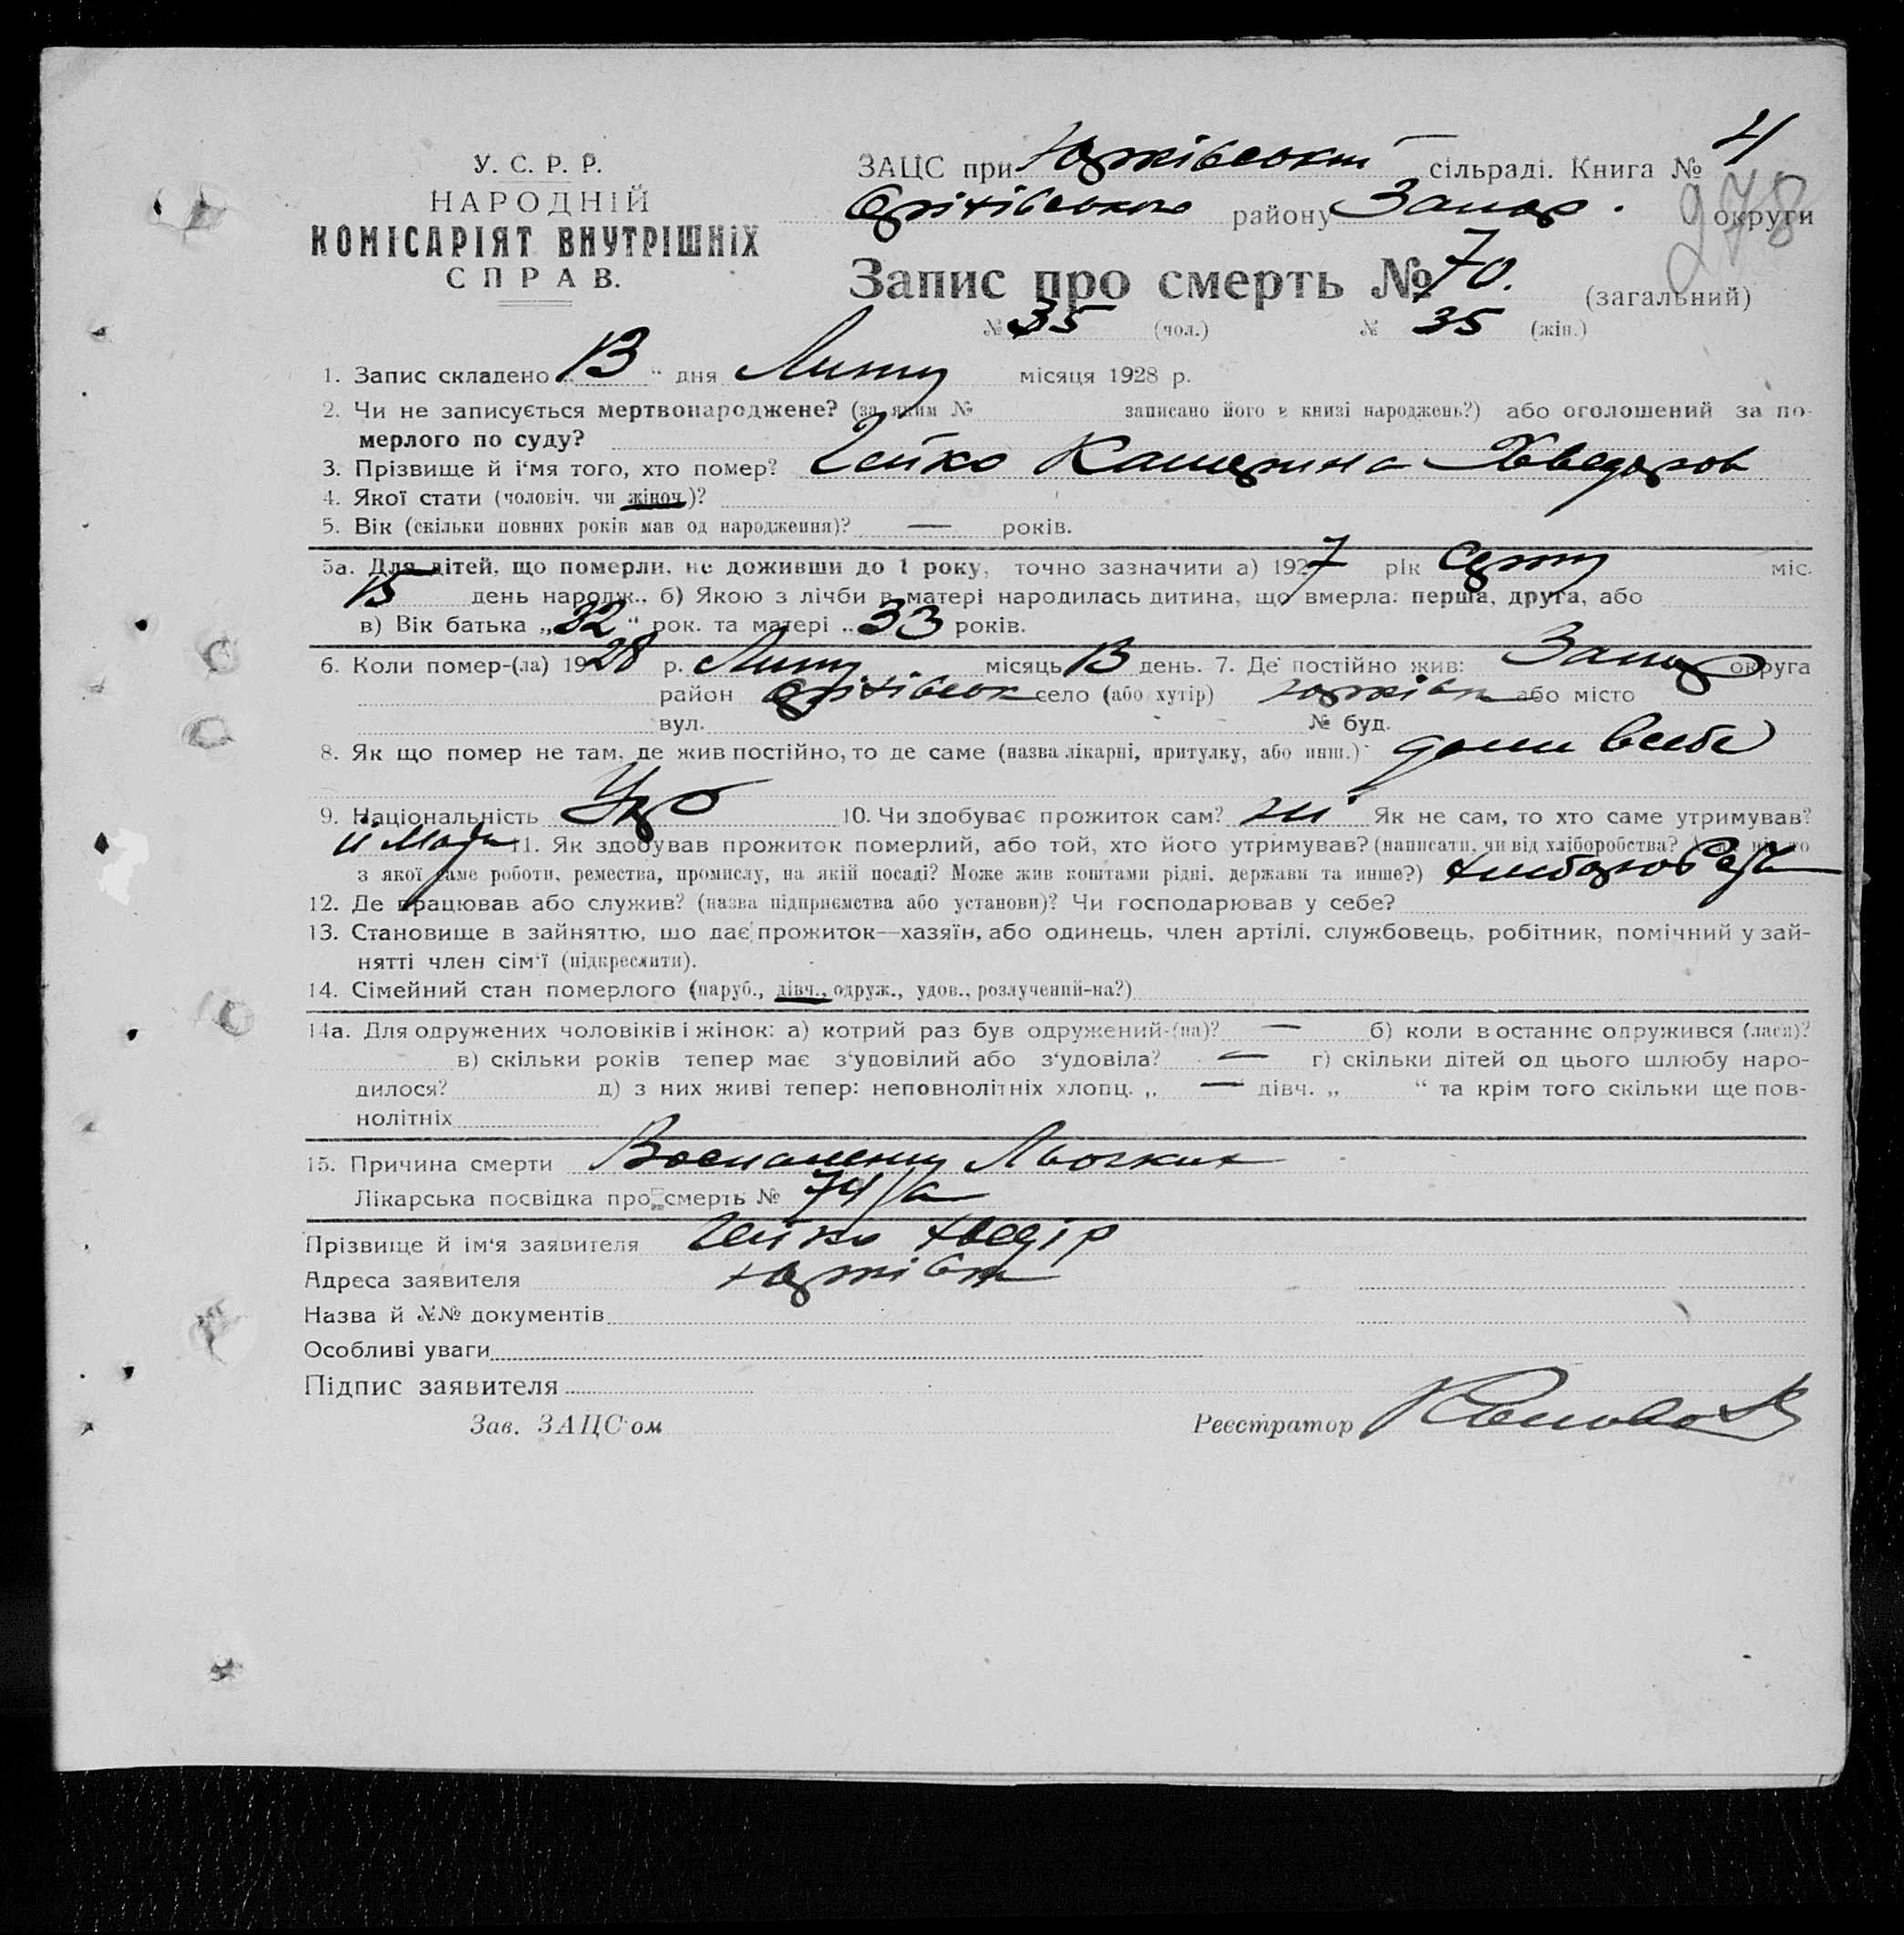 У. С. Р. Р.
НАРОДНІЙ
КОМІСАРІЯТ ВНУТРІШНІХ
СПРАВ.
ЗАЦС при Юрківській сільраді. Книга № 4
Оріхівського району Запор. округи
278
Запис про смерть № 70. (загальний)
№ 35 (чол.) № 35 (жін.)
1. Запис складено „13“ дня Люту місяця 1928 р.
2. Чи не записується мертвонароджене? (за яким № записано його в книзі народжень?) або оголошений за по-
мерлого по суду?
3. Прізвище й і‘мя того, хто помер? Гейко Катерина Хведоров
4. Якої стати (чоловіч. чи жіноч.)?
5. Вік (скільки повних років мав од народження)? — років.
5а. Для дітей, що померли, не доживши до 1 року, точно зазначити а) 1927 рік Серпу міс.
15 день народж., б) Якою з лічби в матері народилась дитина, що вмерла: перша, друга, або
в) Вік батька „32“ рок. та матері „33 років.
6. Коли помер-(ла) 1928 р. Луту місяць 13 день. 7. Де постійно жив: Запор округа
район Оріхівськ село (або хутір) Юрківк або місто
вул. № буд.
8. Як що помер не там, де жив постійно, то де саме (назва лікарні, притулку, або инш.) дома всебе
9. Національність Укр 10. Чи здобуває прожиток сам? ні Як не сам, то хто саме утримував?
11. Як здобував прожиток померлий, або той, хто його утримував? (написати, чи від хліборобства? А як ні, то
з якої саме роботи, ремества, промислу, на якій посаді? Може жив коштами рідні, держави та инше?)
12. Де працював або служив? (назва підприємства або установи)? Чи господарював у себе?
13. Становище в зайняттю, що дає прожиток—хазяїн, або одинець, член артілі, службовець, робітник, помічний у зай-
нятті член сім‘ї (підкреслити).
14. Сімейний стан померлого (паруб., дівч., одруж., удов., розлучений-на?)
14а. Для одружених чоловіків і жінок: а) котрий раз був одружений-(на)? — б) коли востаннє одружився (лася)?
в) скільки років тепер має з‘удовілий або з‘удовіла? — г) скільки дітей од цього шлюбу наро-
дилося? д) з них живі тепер: неповнолітніх хлопц. „ — дівч. „ “ та крім того скільки ще пов-
нолітніх
15. Причина смерти Воспаления Льогких
Лікарська посвідка про смерть № 74/а
Прізвище й ім‘я заявителя Гейко Хведір
Адреса заявителя Юрківка
Назва й №№ документів
Особливі уваги
Підпис заявителя
Зав. ЗАЦС‘ом Реєстратор